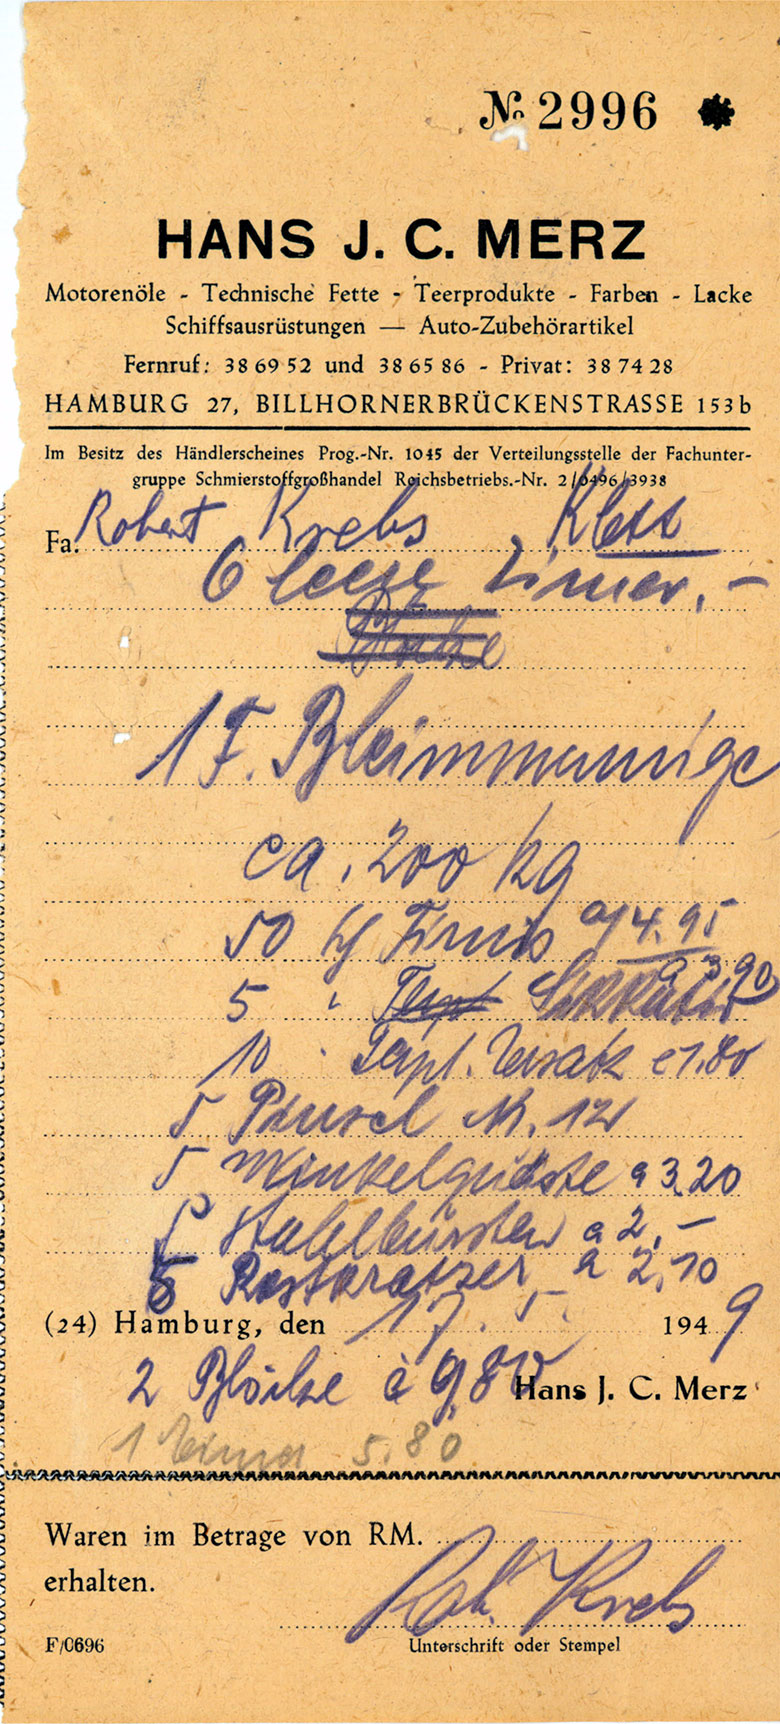 № 2996
HANS J. C. MERZ
Motorenöle - Technische Fette - Teerprodukte - Farben - Lacke
Schiffsausrüstungen — Auto-Zubehörartikel
Fernruf: 38 69 52 und 38 65 86 - Privat: 38 74 28
HAMBURG 27, BILLHORNERBRÜCKENSTRASSE 153b
Im Besitz des Händlerscheines Prog.-Nr. 1045 der Verteilungsstelle der Fachunter-
gruppe Schmierstoffgroßhandel Reichsbetriebs.-Nr. 2/0496/3938
Fa. Robert Krebs, Klett
6 leere Eimer, -
1 F. Bleimmennige
ca. 200 kg
50 kg Firnis a 4.95
5 " Sikkativ a 3,90
10 " Terpt. Ersatz a 1.80
5 Pinsel Nr. 12
5 Winkelquäste a 3.20
5 Stahlbürsten a 2,-
5 Rostkratzer a 2,10
(24) Hamburg, den 17. 5. 1949
2 Blöcke à 9,80 Hans J. C. Merz
1 Eimer 5.80
Waren im Betrage von RM.
erhalten.
Rob. Krebs
F/0696 Unterschrift oder Stempel